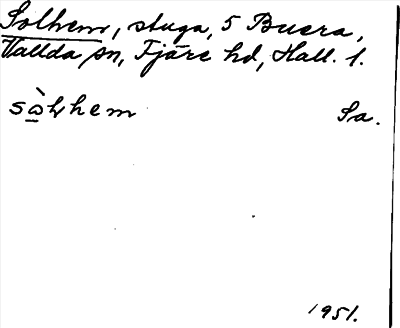 Solhem, stuga, 5 Buera,
Vallda sn, Fjäre hd, Hall. l.
Sa.
1951.